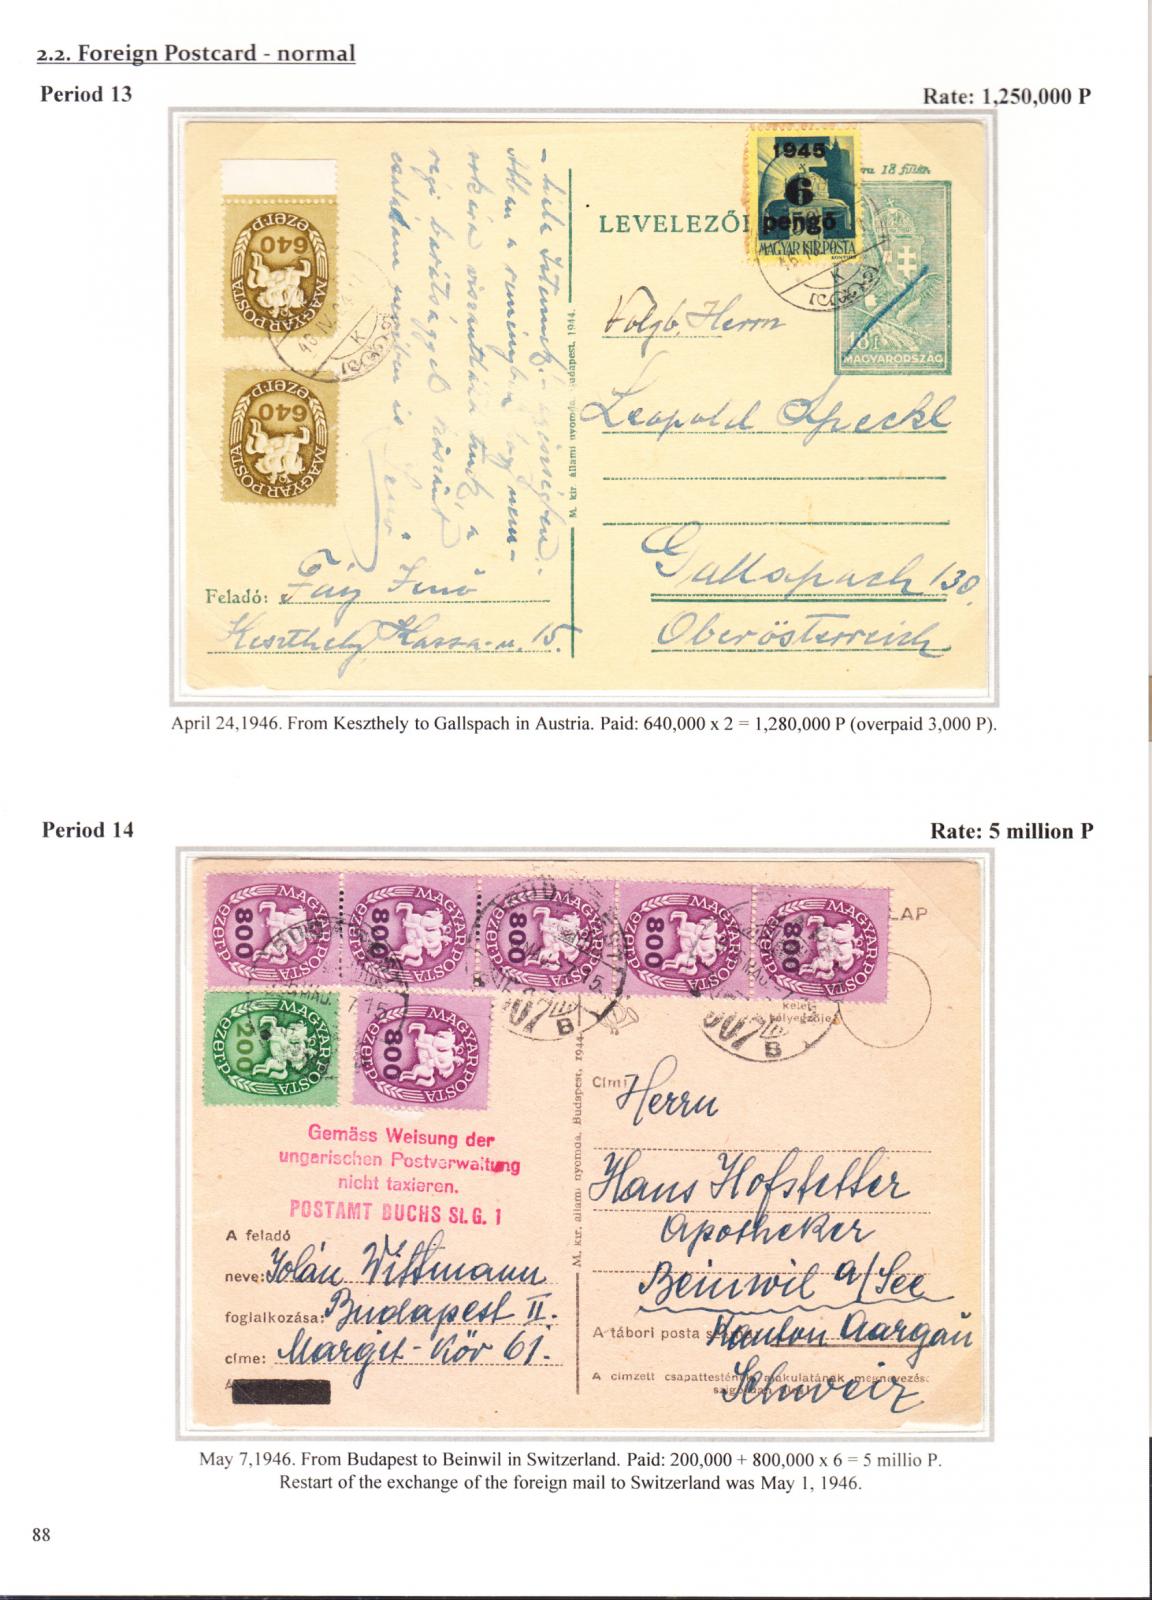 2.2. Foreign Postcard - normal
Period 13
Rate: 1,250,000 P
1945
6
pengő
MAGYAR KIR. POSTA
18 fillér
LEVELEZŐL
MAGYARORSZÁG
640
ezer P.
MAGYAR POSTA
640
ezer P.
MAGYAR POSTA
Herrn
Leopold Speckl
Gallspach 130.
Oberösterreich
M. kir. állami nyomda, Budapest, 1944.
régi barátsággal köszönt
családom nevében is
Jenő
Feladó: Fáy Jenő
Keszthely Kassa-u. 15.
April 24,1946. From Keszthely to Gallspach in Austria. Paid: 640,000 x 2 = 1,280,000 P (overpaid 3,000 P).
Period 14
Rate: 5 million P
800
ezer P.
MAGYAR POSTA
800
ezer P.
MAGYAR POSTA
800
MAGYAR POSTA
800
MAGYAR POSTA
800
MAGYAR POSTA
LAP
200
ezer P.
MAGYAR POSTA
800
ezer P.
MAGYAR POSTA
B
B
kelet
bélyegzője
Gemäss Weisung der
ungarischen Postverwaltung
nicht taxieren.
POSTAMT BUCHS St. G. 1
A feladó
neve: Jolán Wittmann
foglalkozása: Budapest II.
címe: Margit-Kör 61.
M. kir. állami nyomda, Budapest, 1944
Cím:
Herrn
Hans Hofstetter
Apotheker
Beinwil a/See
A tábori posta
Kanton Aargau
A címzett csapattestének, alakulatának megnevezése
Schweiz
May 7,1946. From Budapest to Beinwil in Switzerland. Paid: 200,000 + 800,000 x 6 = 5 millio P.
Restart of the exchange of the foreign mail to Switzerland was May 1, 1946.
88